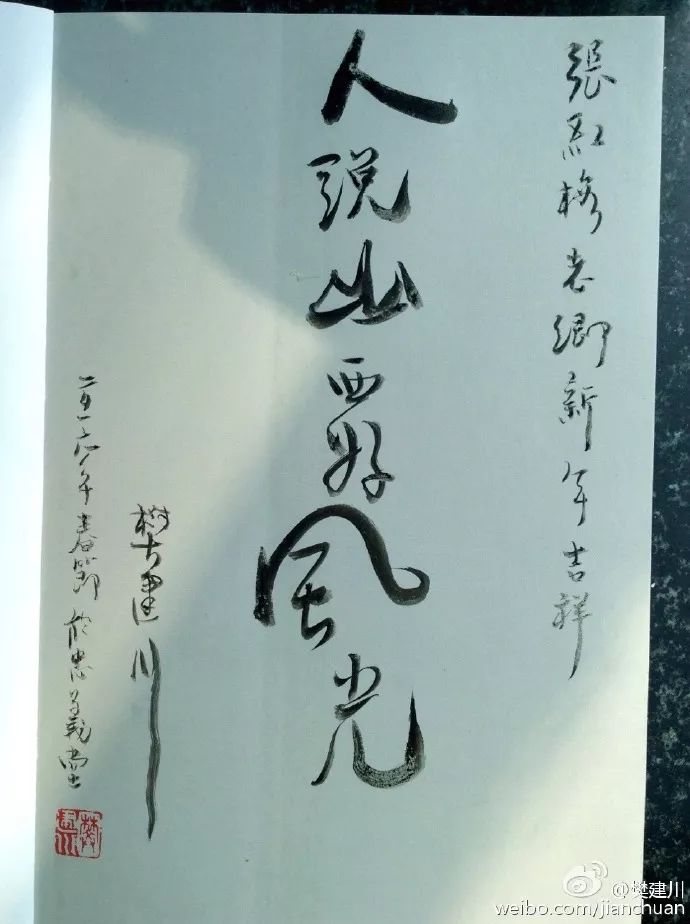 張紅梅老鄉新年吉祥
人說山西好風光
樊建川
二〇一六年春節於忠義堂
@樊建川
weibo.com/jianchuan